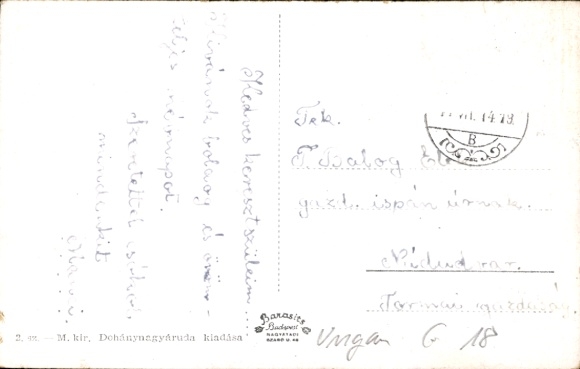 Kedves keresztszüleim
Kívánunk boldog és öröm-
teljes névnapot.
Szeretettel csókol
mindenkit
Tek.
T. Balog El
gazd. ispán úrnak.
Nádudvar.
Tormai gazdaság
VII. 14 18
B
2. sz. — M. kir. Dohánynagyáruda kiadása
Barasits
Budapest
NAGYATÁDI
SZABÓ U. 46
Ungarn G 18